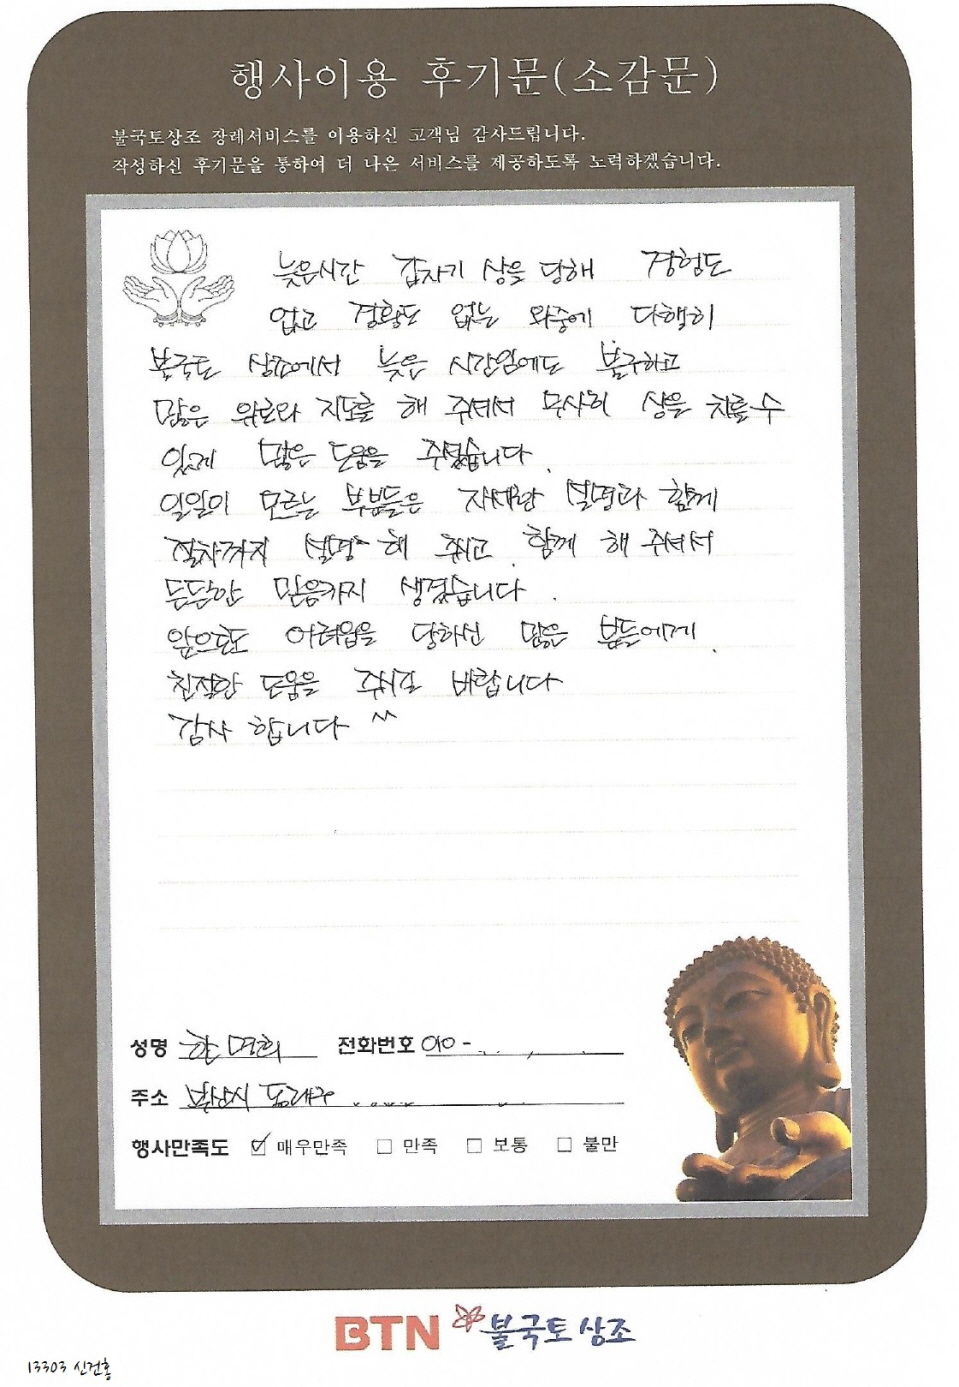 행사이용 후기문(소감문)
불국토상조 장례서비스를 이용하신 고객님 감사드립니다.
작성하신 후기문을 통하여 더 나은 서비스를 제공하도록 노력하겠습니다.
늦은시간 갑자기 상을 당해 경험도
없고 경황도 없는 와중에 다행히
불국토 상조에서 늦은 시간임에도 불구하고
많은 위로와 지도를 해 주셔서 무사히 상을 치를수
있게 많은 도움을 주셨습니다.
일일이 모르는 부분들은 자세한 설명과 함께
절차까지 설명 해 주시고 함께 해 주셔서
든든한 믿음까지 생겼습니다.
앞으로도 어려움을 당하신 많은 분들에게
친절한 도움을 주시길 바랍니다
감사 합니다 ^^
성명 한명희 전화번호 010-
주소 부산시 동래구
행사만족도 ☑ 매우만족 □ 만족 □ 보통 □ 불만
BTN 불국토상조
13303 신건홍